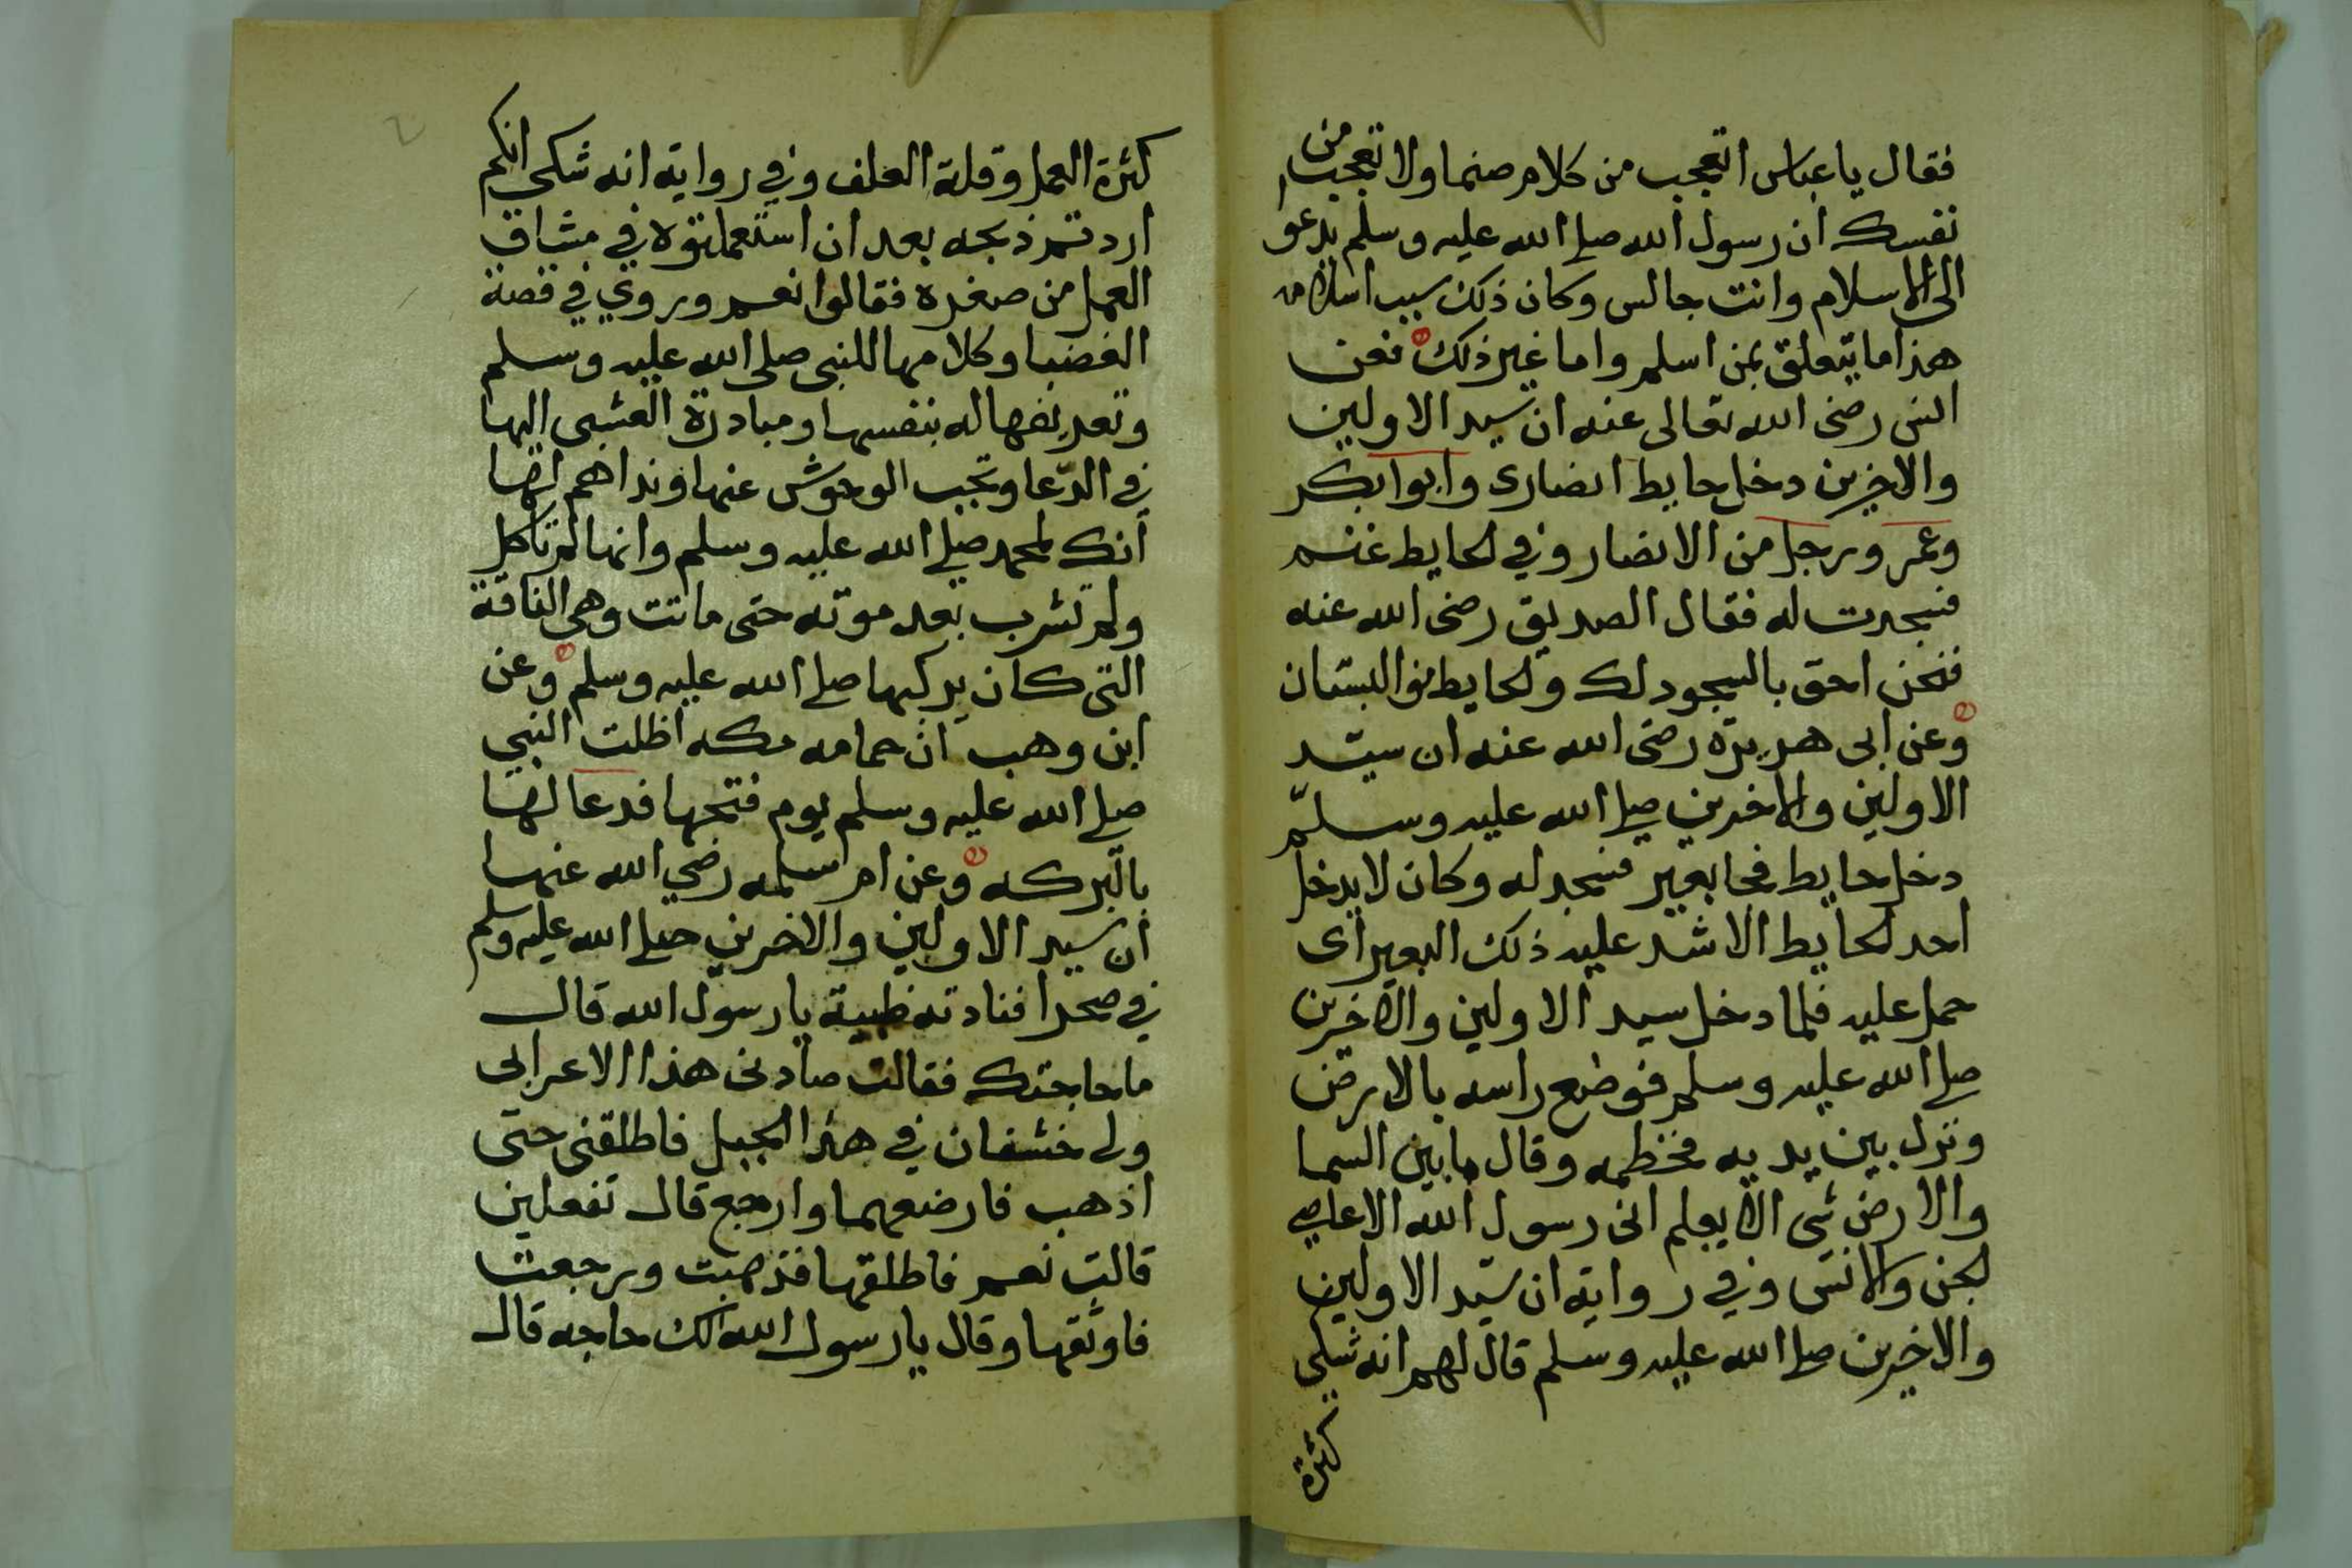 فقال يا عباس اتعجب من كلام صنما ولا تعجب من
نفسك ان رسول الله صلى الله عليه وسلم يدعو
الى الاسلام وانت جالس وكان ذلك سبب اسلامه
هذا ما يتعلق بمن اسلم واما غير ذلك فعن
انس رضى الله تعالى عنه ان سيد الاولين
والاخرين دخل حايط انصارى وابوا بكر
وعمر ورجل من الانصار وفي لحايط غنم
فسجدت له فقال الصديق رضى الله عنه
فنحن احق بالسجود لك ولحايط هو البستان
وعن ابى هريرة رضى الله عنه ان سيد
الاولين والاخرين صلى الله عليه وسلم
دخل حايط فجا بعير فسجد له وكان لا يدخل
احد لحايط الا شد عليه ذلك البعير اى
حمل عليه فلما دخل سيد الاولين والاخرين
صلى الله عليه وسلم فوضع راسه بالارض
ونزل بين يديه فخطمه وقال ما بين السما
والارض شى الا يعلم انى رسول الله الا عاصى
لجن والانس وفي رواية ان سيد الاولين
والاخرين صلى الله عليه وسلم قال لهم انه شكى
كثرة
كثرة العمل وقلة العلف وفي رواية انه شكى انكم
اردتم ذبحه بعد ان استعملتوه في مشاق
العمل من صغره فقالوا نعم وروي في قصة
الغضبا وكلامها للنبى صلى الله عليه وسلم
وتعريفها له بنفسها ومبادرة العشب اليها
في الدعا وتجب الوحوش عنها ونداهم لها
انك لمحمد صلى الله عليه وسلم وانها لم تاكل
ولم تشرب بعد موته حتى ماتت وهي الناقة
التى كان يركبها صلى الله عليه وسلم وعن
ابن وهب ان حمامه مكه اظلت النبي
صلى الله عليه وسلم يوم فتحها فدعا لها
بالبركه وعن ام سلمه رضي الله عنها
ان سيد الاولين والاخرين صلى الله عليه وسلم
في صحرا فنادته ظبية يا رسول الله قال
ما حاجتك فقالت صادنى هذا الاعرابى
ولى خشفان في هذا الجبل فاطلقنى حتى
اذهب فارضعهما وارجع قال تفعلين
قالت نعم فاطلقها فذهبت ورجعت
فاوثقها وقال يا رسول الله الك حاجه قال